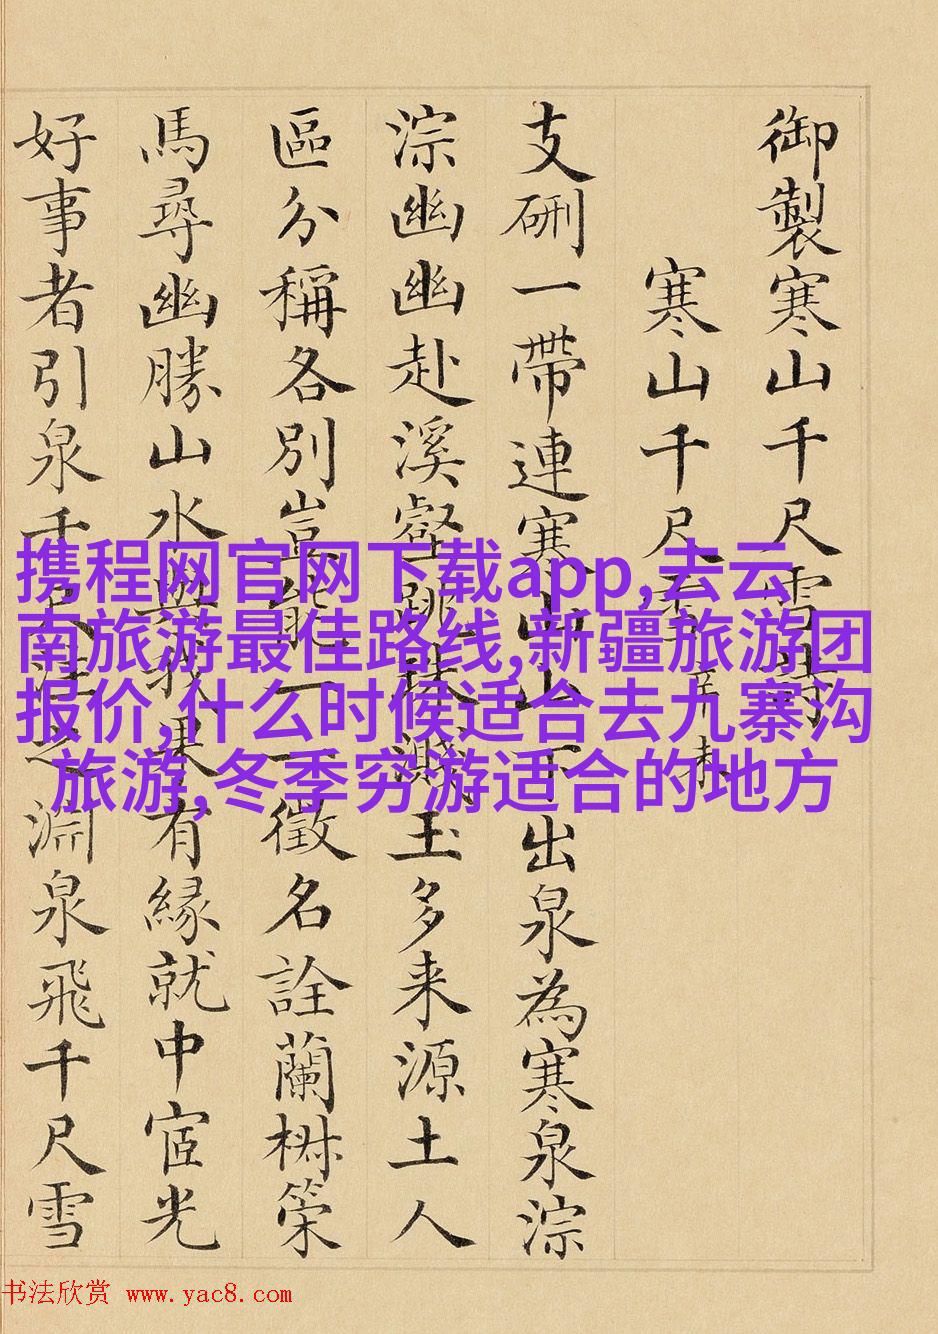 御製寒山千尺雪詩
寒山千尺雪 辛未
支硎一帶連寒山山下出泉為寒泉淙
淙幽幽赴溪壑跳珠濺玉多来源土人
區分稱各別豈能一一徵名詮蘭椒策
馬尋幽勝山水與我果有緣就中宦光
好事者引泉千尺注之淵泉飛千尺雪
携程网官网下载app,去云
南旅游最佳路线,新疆旅游团
报价,什么时候适合去九寨沟
旅游,冬季穷游适合的地方
书法欣赏 www.yac8.com